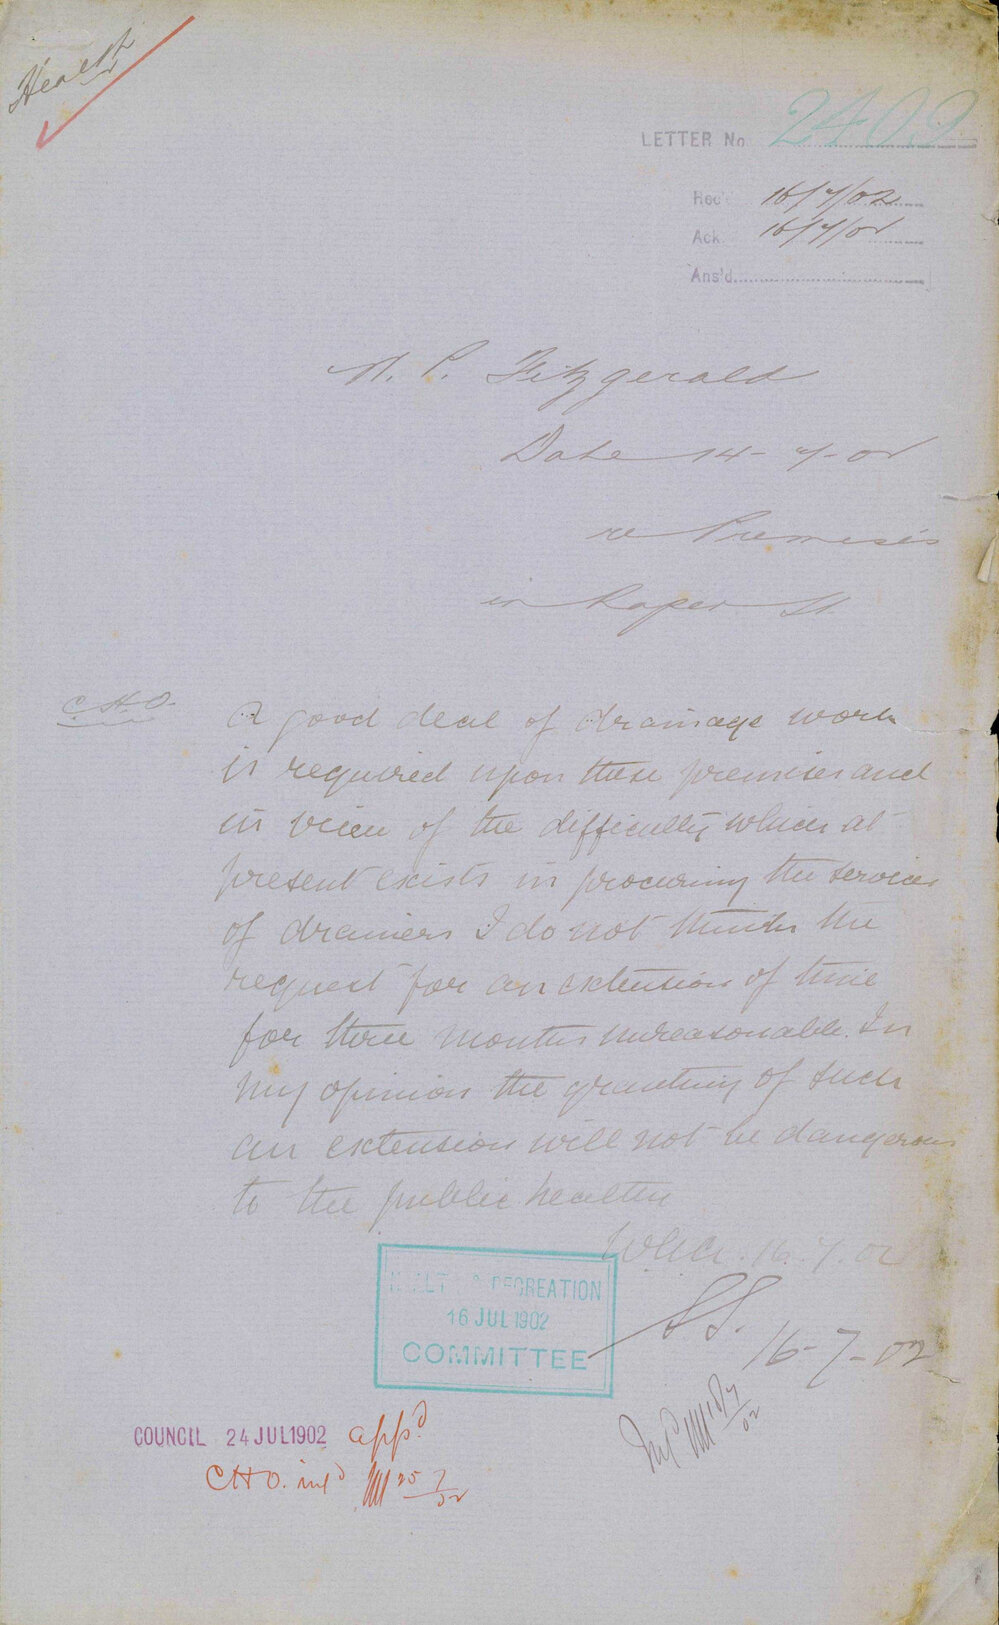 Health
LETTER No 2409
Rec'd 16/7/02
Ack. 16/7/02
Ans'd
N. P. Fitzgerald
Date 14-7-02
re Premises
in Roper St.
C.H.O.
A good deal of drainage work
is required upon these premises and
in view of the difficulty which at
present exists in procuring the services
of drainers I do not think the
request for an extension of time
for three months unreasonable. In
my opinion the granting of such
an extension will not be dangerous
to the public health
16.7.02
HEALTH & RECREATION
16 JUL 1902
COMMITTEE
16-7-02
COUNCIL 24 JUL 1902 appd
CHO. infd 25/7/02